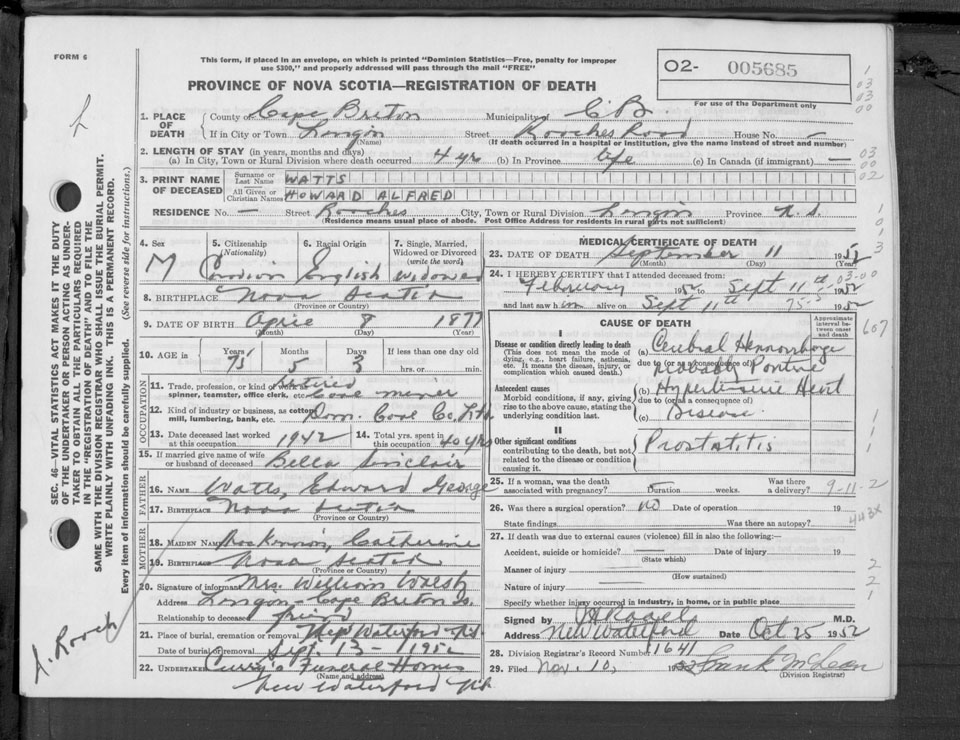 FORM 6
This form, if placed in an envelope, on which is printed "Dominion Statistics—Free, penalty for improper
use $300," and properly addressed will pass through the mail "FREE"
O2- 005685
For use of the Department only
PROVINCE OF NOVA SCOTIA—REGISTRATION OF DEATH
1. PLACE OF DEATH
County of Cape Breton Municipality of C.B.
If in City or Town Street Roaches Road House No. —
(Name) (If death occurred in a hospital or institution, give the name instead of street and number)
2. LENGTH OF STAY (in years, months and days)
(a) In City, Town or Rural Division where death occurred 4 yrs (b) In Province life (c) In Canada (if immigrant) —
3. PRINT NAME OF DECEASED
Surname or Last Name WATTS
All Given or Christian Names HOWARD ALFRED
RESIDENCE No. — Street Roaches City, Town or Rural Division Province N.S.
(Residence means usual place of abode. Post Office Address for residents in rural parts not sufficient)
4. Sex M
5. Citizenship (Nationality)
6. Racial Origin English
7. Single, Married, Widowed or Divorced (write the word) Widowed
8. BIRTHPLACE Nova Scotia
(Province or Country)
9. DATE OF BIRTH April 8 1877
(Month) (Day) (Year)
10. AGE in Years 75 Months 5 Days 3 If less than one day old hrs. or min.
OCCUPATION
11. Trade, profession, or kind of work as spinner, teamster, office clerk, etc. Retired Coal miner
12. Kind of industry or business, as cotton mill, lumbering, bank, etc. Dom. Coal Co. Ltd.
13. Date deceased last worked at this occupation 1942
14. Total yrs. spent in this occupation 40 yrs
15. If married give name of wife or husband of deceased Bella Sinclair
FATHER
16. NAME Watts, Edward George
17. BIRTHPLACE Nova Scotia
(Province or Country)
MOTHER
18. MAIDEN NAME Catherine
19. BIRTHPLACE Nova Scotia
(Province or Country)
20. Signature of informant Mrs. William Walsh
Address Cape Breton
Relationship to deceased friend
21. Place of burial, cremation or removal New Waterford N.S.
Date of burial or removal Sept. 13 - 1952
22. UNDERTAKER Curry's Funeral Homes
(Name and address)
New Waterford N.S.
MEDICAL CERTIFICATE OF DEATH
23. DATE OF DEATH September 11 1952
(Month) (Day) (Year)
24. I HEREBY CERTIFY that I attended deceased from:
February 1952 to Sept 11th 1952
and last saw him alive on Sept 11th 1952
CAUSE OF DEATH
Approximate interval between onset and death
I
Disease or condition directly leading to death
(This does not mean the mode of dying, e.g., heart failure, asthenia, etc. It means the disease, injury, or complication which caused death.)
(a) Cerebral Hemorrhage
due to (or as a consequence of)
Probably Pontine
Antecedent causes
Morbid conditions, if any, giving rise to the above cause, stating the underlying condition last.
(b) Hypertensive Heart
due to (or as a consequence of)
(c) Disease
II
Other significant conditions contributing to the death, but not related to the disease or condition causing it.
Prostatitis
25. If a woman, was the death associated with pregnancy? Duration weeks. Was there a delivery?
9-11-2
26. Was there a surgical operation? no Date of operation 19
State findings Was there an autopsy?
443X
27. If death was due to external causes (violence) fill in also the following:—
Accident, suicide or homicide? Date of injury 19
(State which)
Manner of injury
(How sustained)
Nature of injury
Specify whether injury occurred in industry, in home, or in public place
Signed by M.D.
Address New Waterford Date Oct 25 1952
28. Division Registrar's Record Number 1641
29. Filed Nov. 10, 1952 Frank McLean
(Division Registrar)
607
SEC. 46—VITAL STATISTICS ACT MAKES IT THE DUTY
OF THE UNDERTAKER OR PERSON ACTING AS UNDERTAKER TO OBTAIN ALL THE PARTICULARS REQUIRED
IN THE "REGISTRATION OF DEATH" AND TO FILE THE
SAME WITH THE DIVISION REGISTRAR WHO SHALL ISSUE THE BURIAL PERMIT.
WRITE PLAINLY WITH UNFADING INK. THIS IS A PERMANENT RECORD.
Every item of information should be carefully supplied. (See reverse side for instructions.)